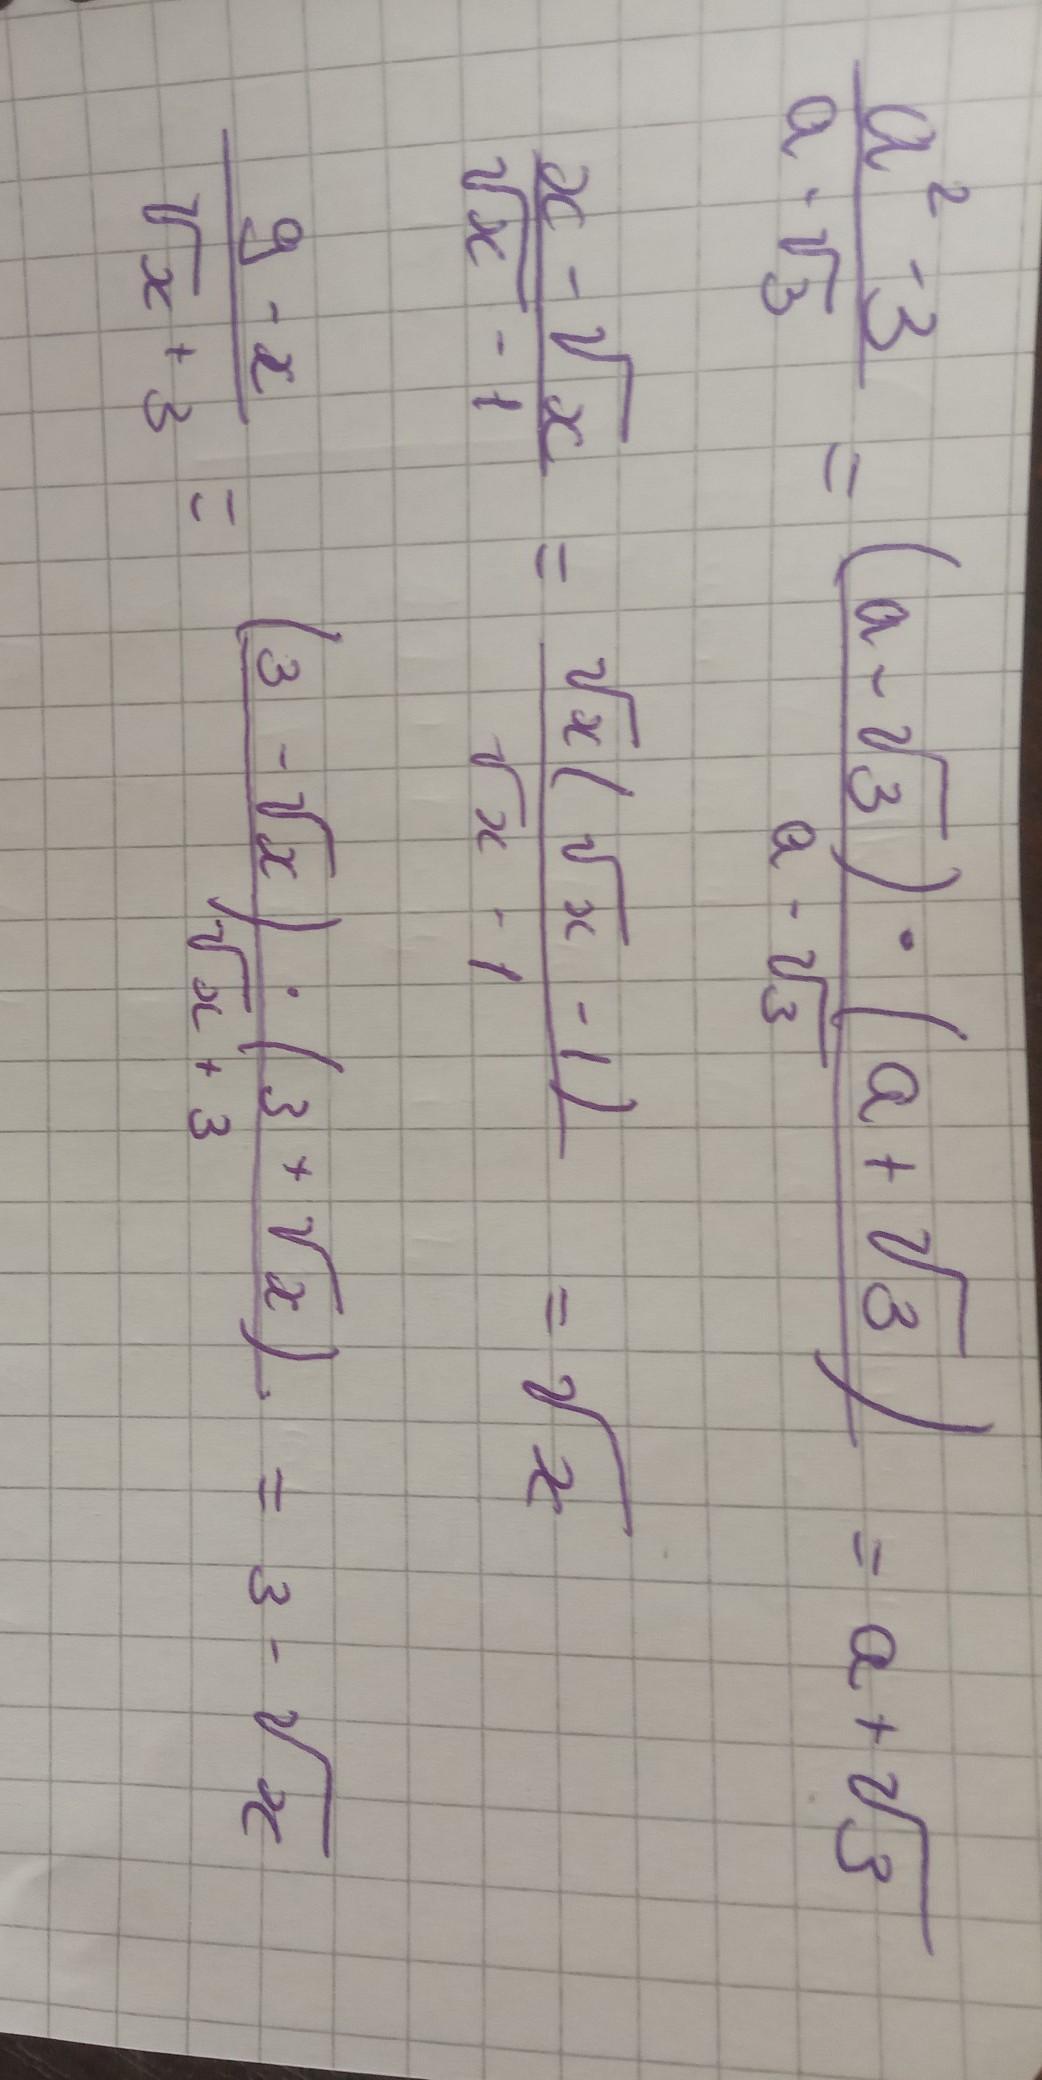 \frac{a^2 - 3}{a - \sqrt{3}} = \frac{(a - \sqrt{3}) \cdot (a + \sqrt{3})}{a - \sqrt{3}} = a + \sqrt{3}
\frac{x - \sqrt{x}}{\sqrt{x} - 1} = \frac{\sqrt{x}(\sqrt{x} - 1)}{\sqrt{x} - 1} = \sqrt{x}
\frac{9 - x}{\sqrt{x} + 3} = \frac{(3 - \sqrt{x}) \cdot (3 + \sqrt{x})}{\sqrt{x} + 3} = 3 - \sqrt{x}